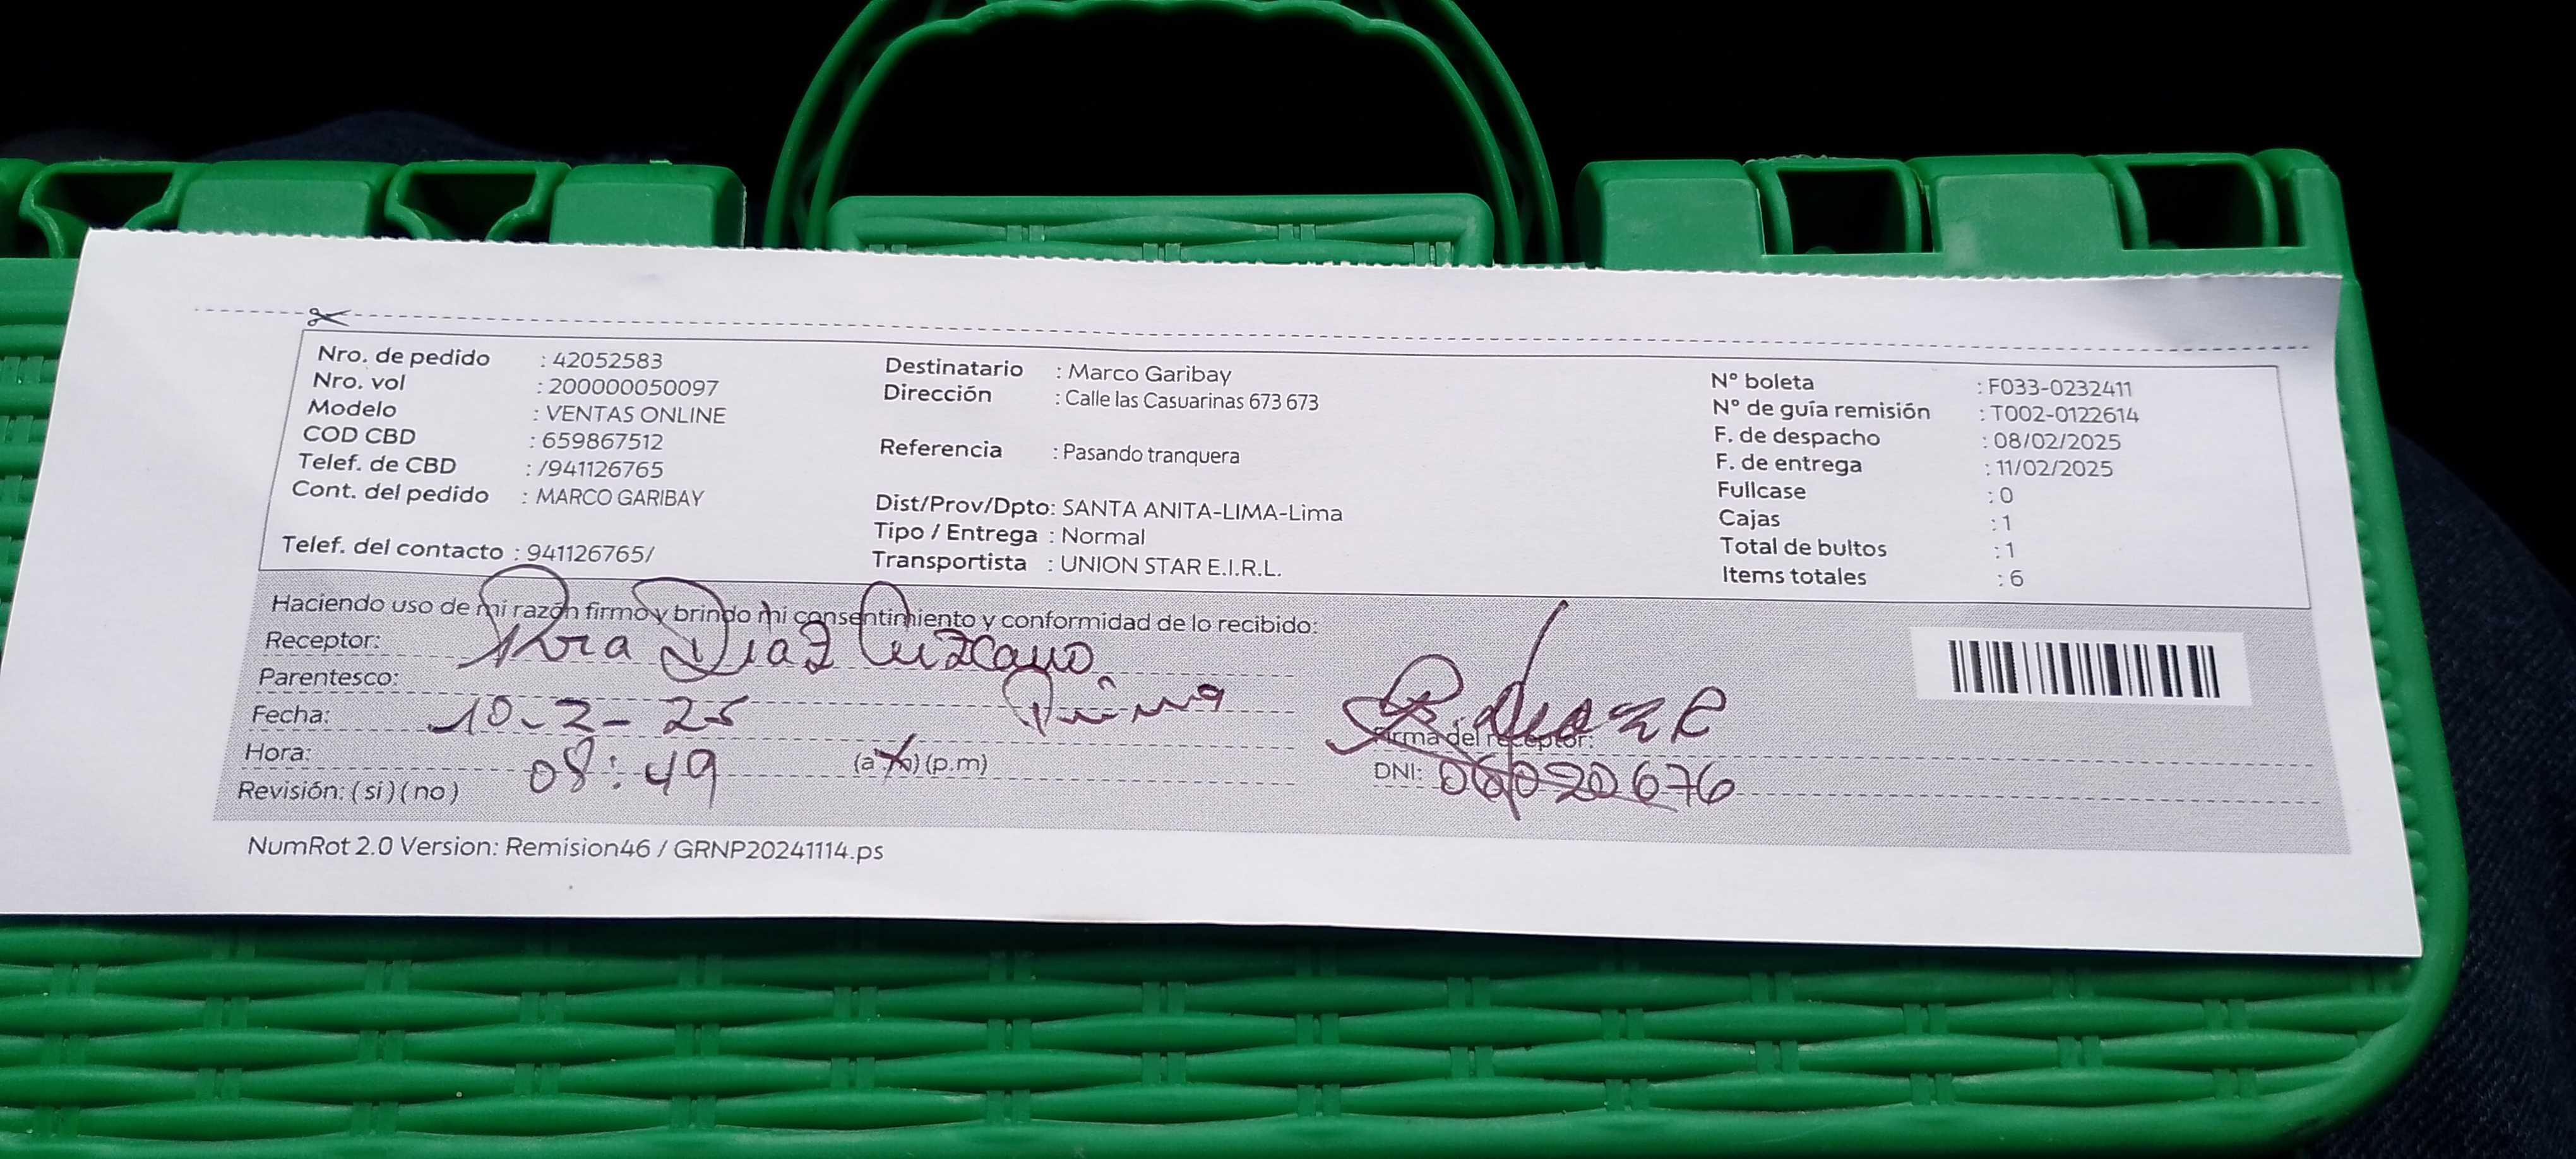 Nro. de pedido : 42052583
Nro. vol : 200000050097
Modelo : VENTAS ONLINE
COD CBD : 659867512
Telef. de CBD : /941126765
Cont. del pedido : MARCO GARIBAY
Telef. del contacto : 941126765/
Destinatario : Marco Garibay
Dirección : Calle las Casuarinas 673 673
Referencia : Pasando tranquera
Dist/Prov/Dpto: SANTA ANITA-LIMA-Lima
Tipo / Entrega : Normal
Transportista : UNION STAR E.I.R.L.
N° boleta : F033-0232411
N° de guía remisión : T002-0122614
F. de despacho : 08/02/2025
F. de entrega : 11/02/2025
Fullcase : 0
Cajas : 1
Total de bultos : 1
Items totales : 6
Haciendo uso de mi razón firmo y brindo mi consentimiento y conformidad de lo recibido:
Receptor: Diaz
Parentesco: Prima
Fecha: 10-2-25
Hora: 08:49 (a.m) (p.m)
Revisión: ( si ) ( no )
Firma del receptor:
DNI: 06020676
NumRot 2.0 Version: Remision46 / GRNP20241114.ps